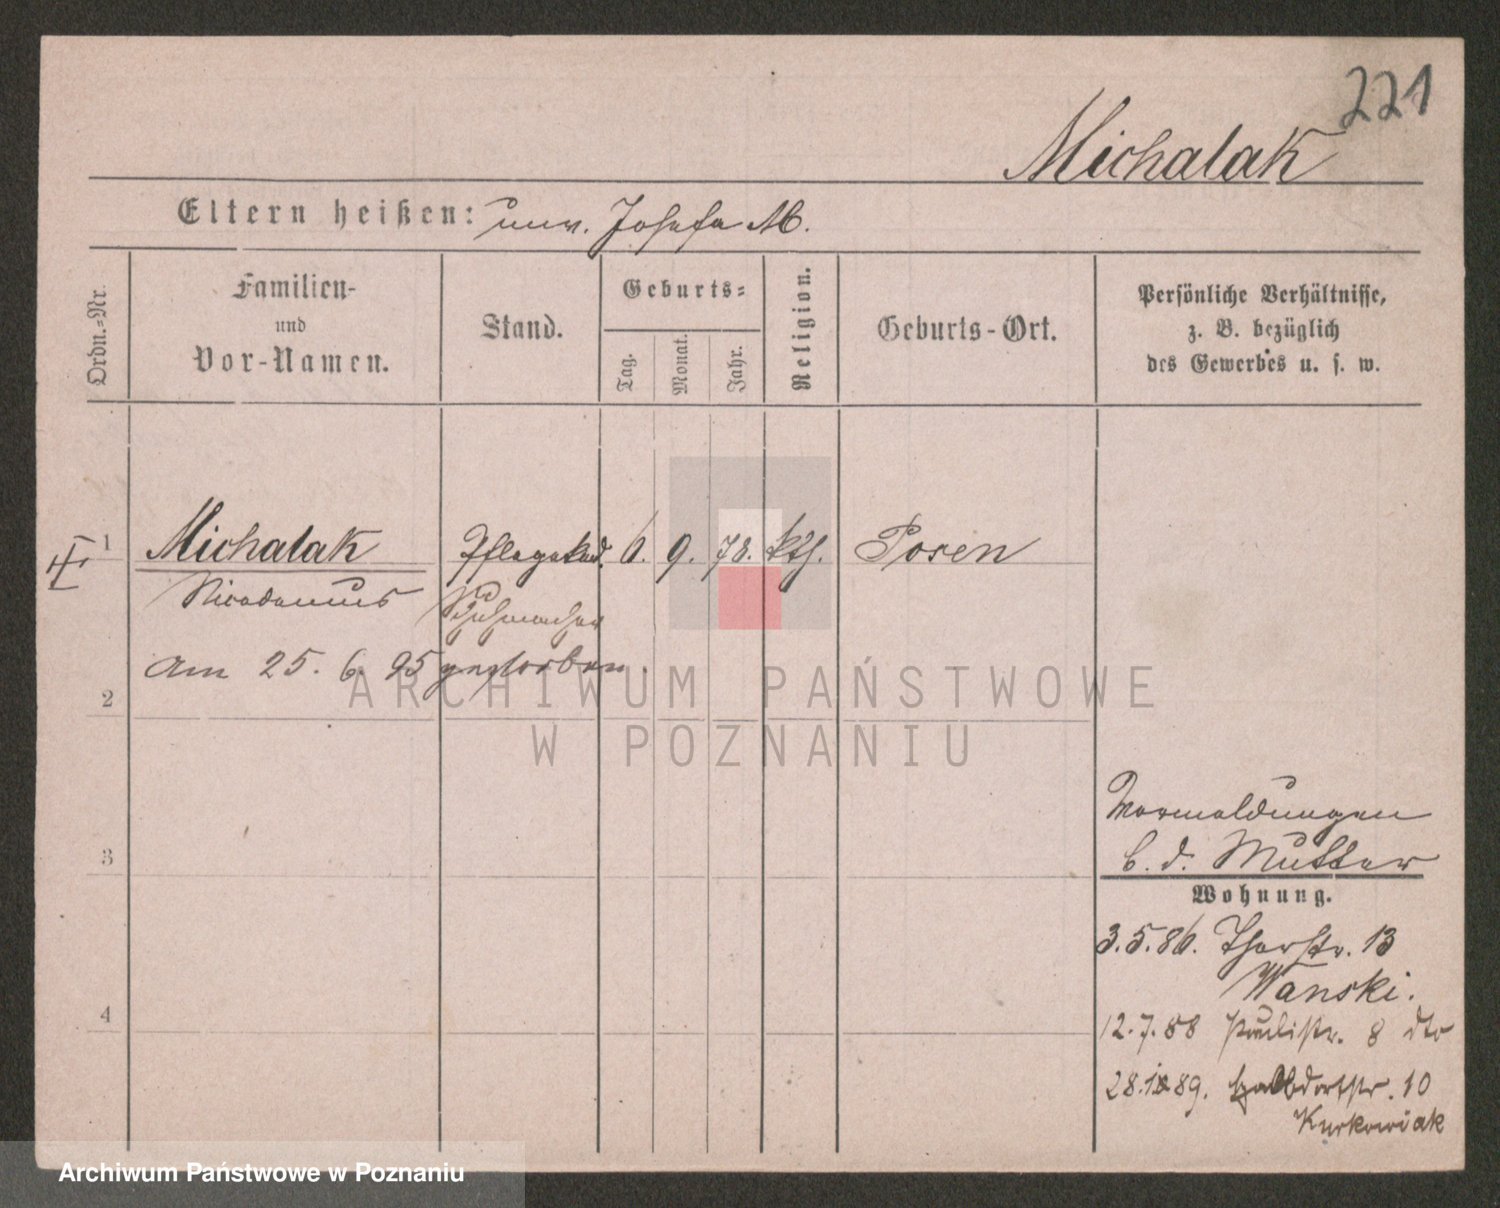 221
Michalak
Eltern heißen: unv. Josefa M.
Ordn.-Nr.
Familien-
und
Vor-Namen.
Stand.
Geburts-
Tag.
Monat.
Jahr.
Religion.
Geburts-Ort.
Persönliche Verhältnisse,
z. B. bezüglich
des Gewerbes u. s. w.
1 Michalak Pflegekind. 6. 9. 78. kth. Posen
Nicodemus Schuhmacher
am 25. 6. 95 gestorben.
2
ARCHIWUM PAŃSTWOWE
W POZNANIU
Vormeldungen
b. d. Mutter
3
Wohnung.
3.5.86. Thorstr. 13
Wanski.
4
12.7.88 Paulistr. 8 dto
28.10.89. Halbdorfstr. 10
Kurkowiak
Archiwum Państwowe w Poznaniu